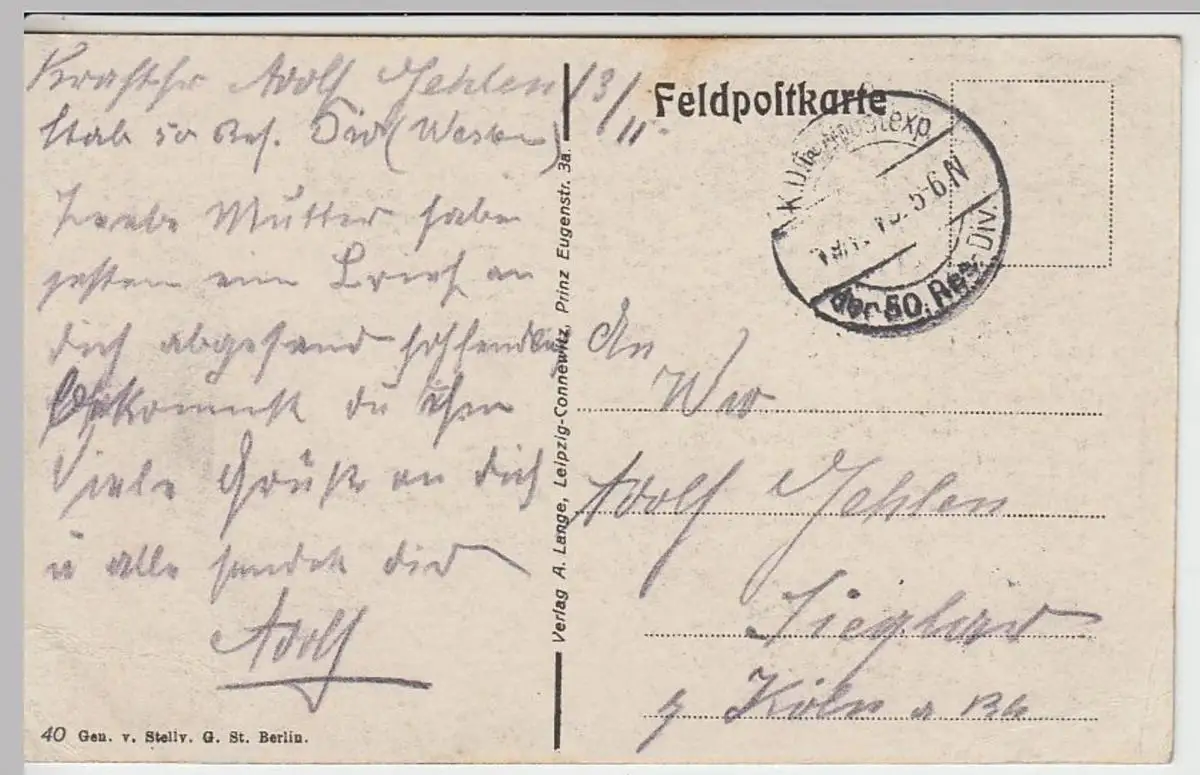 Kraftfr Adolf Gehlen 13/11.
Stab 50 Res. Div (Westen)
Liebe Mutter habe
gestern ein Brief an
dich abgesand hoffendlich
bekommst du ihn
Viele Grüße an dich
u alle sendet dir
Adolf
40 Gen. v. Stellv. G. St. Berlin.
Verlag A. Lange, Leipzig-Connewitz, Prinz Eugenstr. 3a.
Feldpoſtkarte
K.D. Feldpostexp.
5-6.N
der 50. Res. Div.
An
Ww
Adolf Gehlen
Sieglar
b Köln a Rh